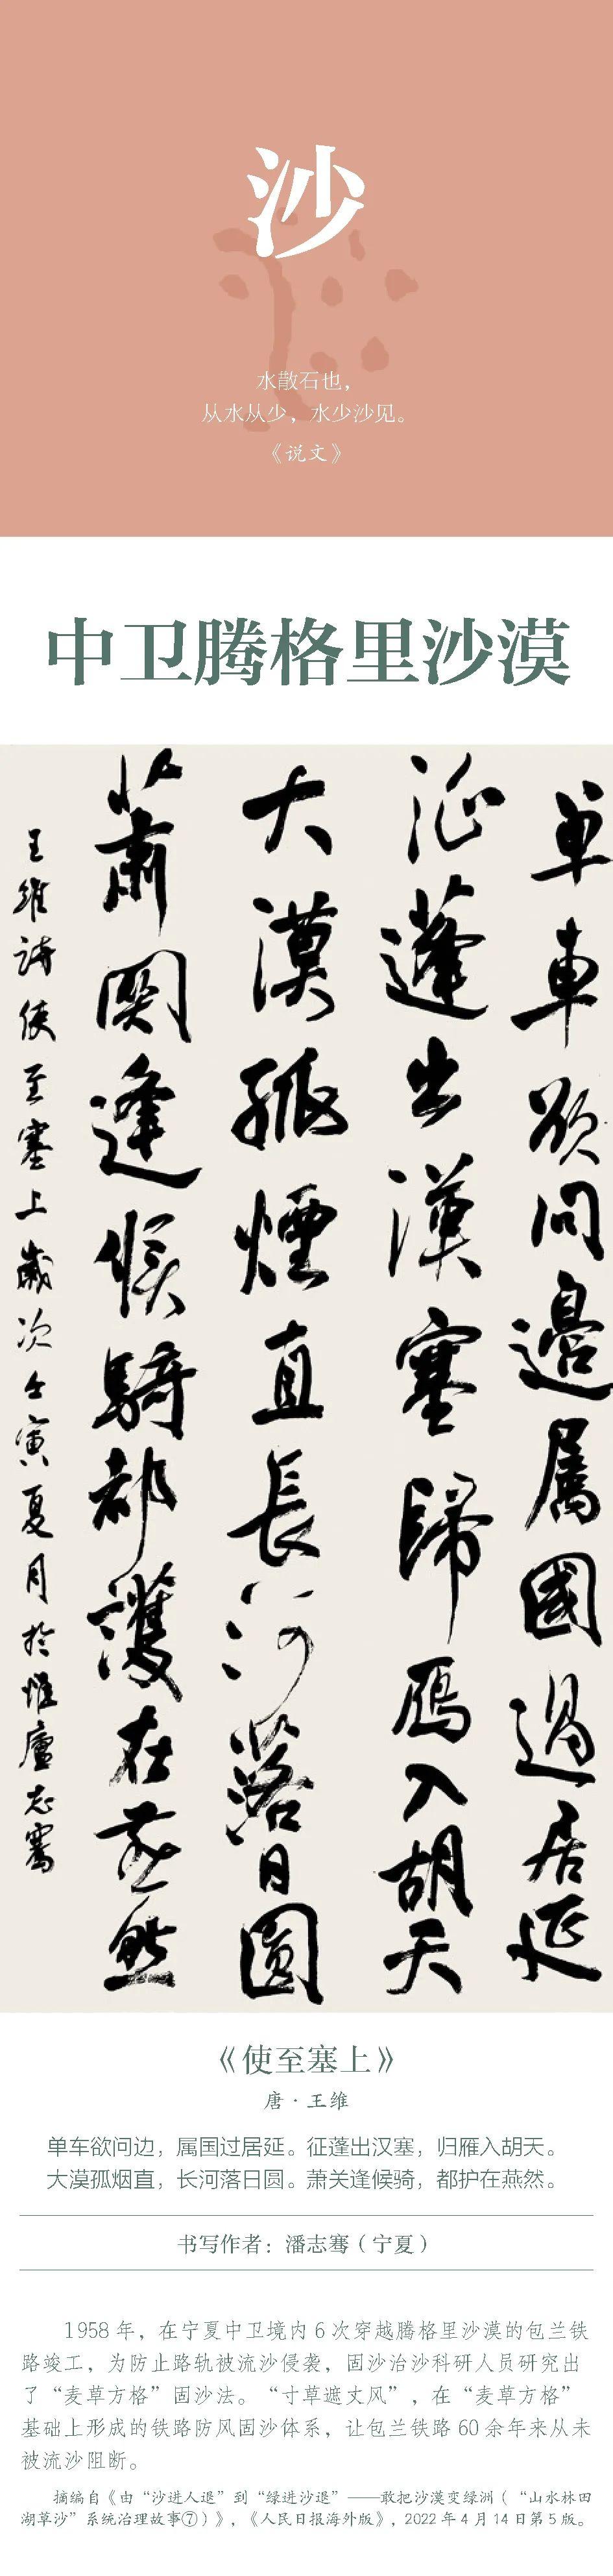 沙
水散石也，
从水从少，水少沙见。
《说文》
中卫腾格里沙漠
单車欲问邊屬國過居延
征蓬出漢塞歸雁入胡天
大漠孤煙直長河落日圓
蕭関逢候騎都護在燕然
王維詩使至塞上歲次壬寅夏月於惟廬志騫
《使至塞上》
唐·王维
单车欲问边，属国过居延。征蓬出汉塞，归雁入胡天。
大漠孤烟直，长河落日圆。萧关逢候骑，都护在燕然。
书写作者：潘志骞（宁夏）
1958 年，在宁夏中卫境内 6 次穿越腾格里沙漠的包兰铁
路竣工，为防止路轨被流沙侵袭，固沙治沙科研人员研究出
了“麦草方格”固沙法。“寸草遮丈风”，在“麦草方格”
基础上形成的铁路防风固沙体系，让包兰铁路 60 余年来从未
被流沙阻断。
摘编自《由“沙进人退”到“绿进沙退”——敢把沙漠变绿洲（“山水林田
湖草沙”系统治理故事⑦）》，《人民日报海外版》，2022 年 4 月 14 日第 5 版。